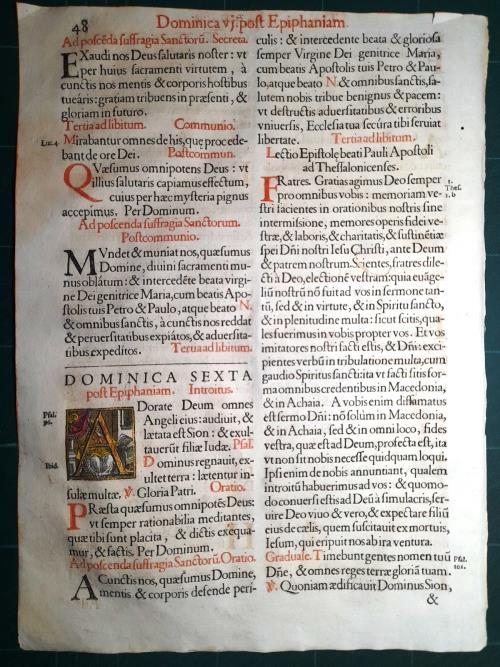 48
Dominica vj. post Epiphaniam.
Ad poscēda suffragia Sanctorū. Secreta.
EXaudi nos Deus salutaris noster : vt
per huius sacramenti virtutem , à
cunctis nos mentis & corporis hostibus
tueáris: gratiam tribuens in præsenti, &
gloriam in futuro.
Tertia ad libitum. Communio.
Luc. 4. Mirabantur omnes de his, quæ procede-
bant de ore Dei. Postcommun.
QVæsumus omnipotens Deus : vt
illius salutaris capiamus effectum,
cuius per hæc mysteria pignus
accepimus. Per Dominum.
Ad poscenda suffragia Sanctorum.
Postcommunio.
MVndet & muniat nos, quæsumus
Domine, diuini sacramenti mu-
nus oblátum: & intercedēte beata virgi-
ne Dei genitrice Maria, cum beatis Apo-
stolis tuis Petro & Paulo, atque beato N.
& omnibus sanctis, à cunctis nos reddat
& peruersitatibus expiátos, & aduersita-
tibus expeditos. Tertia ad libitum.
DOMINICA SEXTA
post Epiphaniam. Introitus.
Psal.
96. ADorate Deum omnes
Angeli eius: audiuit, &
lætata est Sion : & exul-
tauerūt filiæ Iudæ. Psal.
Ibid. Dominus regnauit, ex-
ultet terra: lætentur in-
sulæ multæ. ℣. Gloria Patri. Oratio.
PRæsta quæsumus omnipotēs Deus:
vt semper rationabilia meditantes,
quæ tibi sunt placita , & dictis exequa-
mur, & factis. Per Dominum.
Ad poscenda suffragia Sanctorū. Oratio.
A Cunctis nos, quæsumus Domine,
mentis & corporis defende peri-
culis: & intercedente beata & gloriosa
semper Virgine Dei genitrice Maria,
cum beatis Apostolis tuis Petro & Pau-
lo, atque beato N. & omnibus sanctis, sa-
lutem nobis tribue benignus & pacem:
vt destructis aduersitatibus & erroribus
vniuersis, Ecclesia tua secúra tibi seruiat
libertate. Tertia ad libitum.
Lectio Epistolę beati Pauli Apostoli
ad Thessalonicenses.
FRatres. Gratias agimus Deo semper 1.
pro omnibus vobis : memoriam ve- Thes.
stri facientes in orationibus nostris sine 1. b
intermissione, memores operis fidei ve-
stræ, & laboris, & charitatis, & sustinētiæ
spei Dñi nostri Iesu Christi, ante Deum
& patrem nostrum. Scientes, fratres dile-
cti à Deo, electionē vestram: quia euāge-
liū nostrū nō fuit ad vos in sermone tan-
tū, sed & in virtute, & in Spiritu sancto,
& in plenitudine multa: sicut scitis, qua-
les fuerimus in vobis propter vos. Et vos
imitatores nostri facti estis, & Dñi: exci-
pientes verbū in tribulatione multa, cum
gaudio Spiritus sancti: ita vt facti sitis for-
ma omnibus credentibus in Macedonia,
& in Achaia. A vobis enim diffamatus
est sermo Dñi: nō solùm in Macedonia,
& in Achaia, sed & in omni loco, fides
vestra, quæ est ad Deum, profecta est, ita
vt non sit nobis necesse quidquam loqui.
Ipsi enim de nobis annuntiant, qualem
introitū habuerimus ad vos : & quomo-
do conuersi estis ad Deū à simulacris, ser-
uire Deo viuo & vero, & expectare filiū
eius de cælis, quem suscitauit ex mortuis,
Iesum, qui eripuit nos ab ira ventura.
Graduale. Timebunt gentes nomen tuū Psal.
Dñe, & omnes reges terræ gloriā tuam. 101.
℣. Quoniam ædificauit Dominus Sion,
&